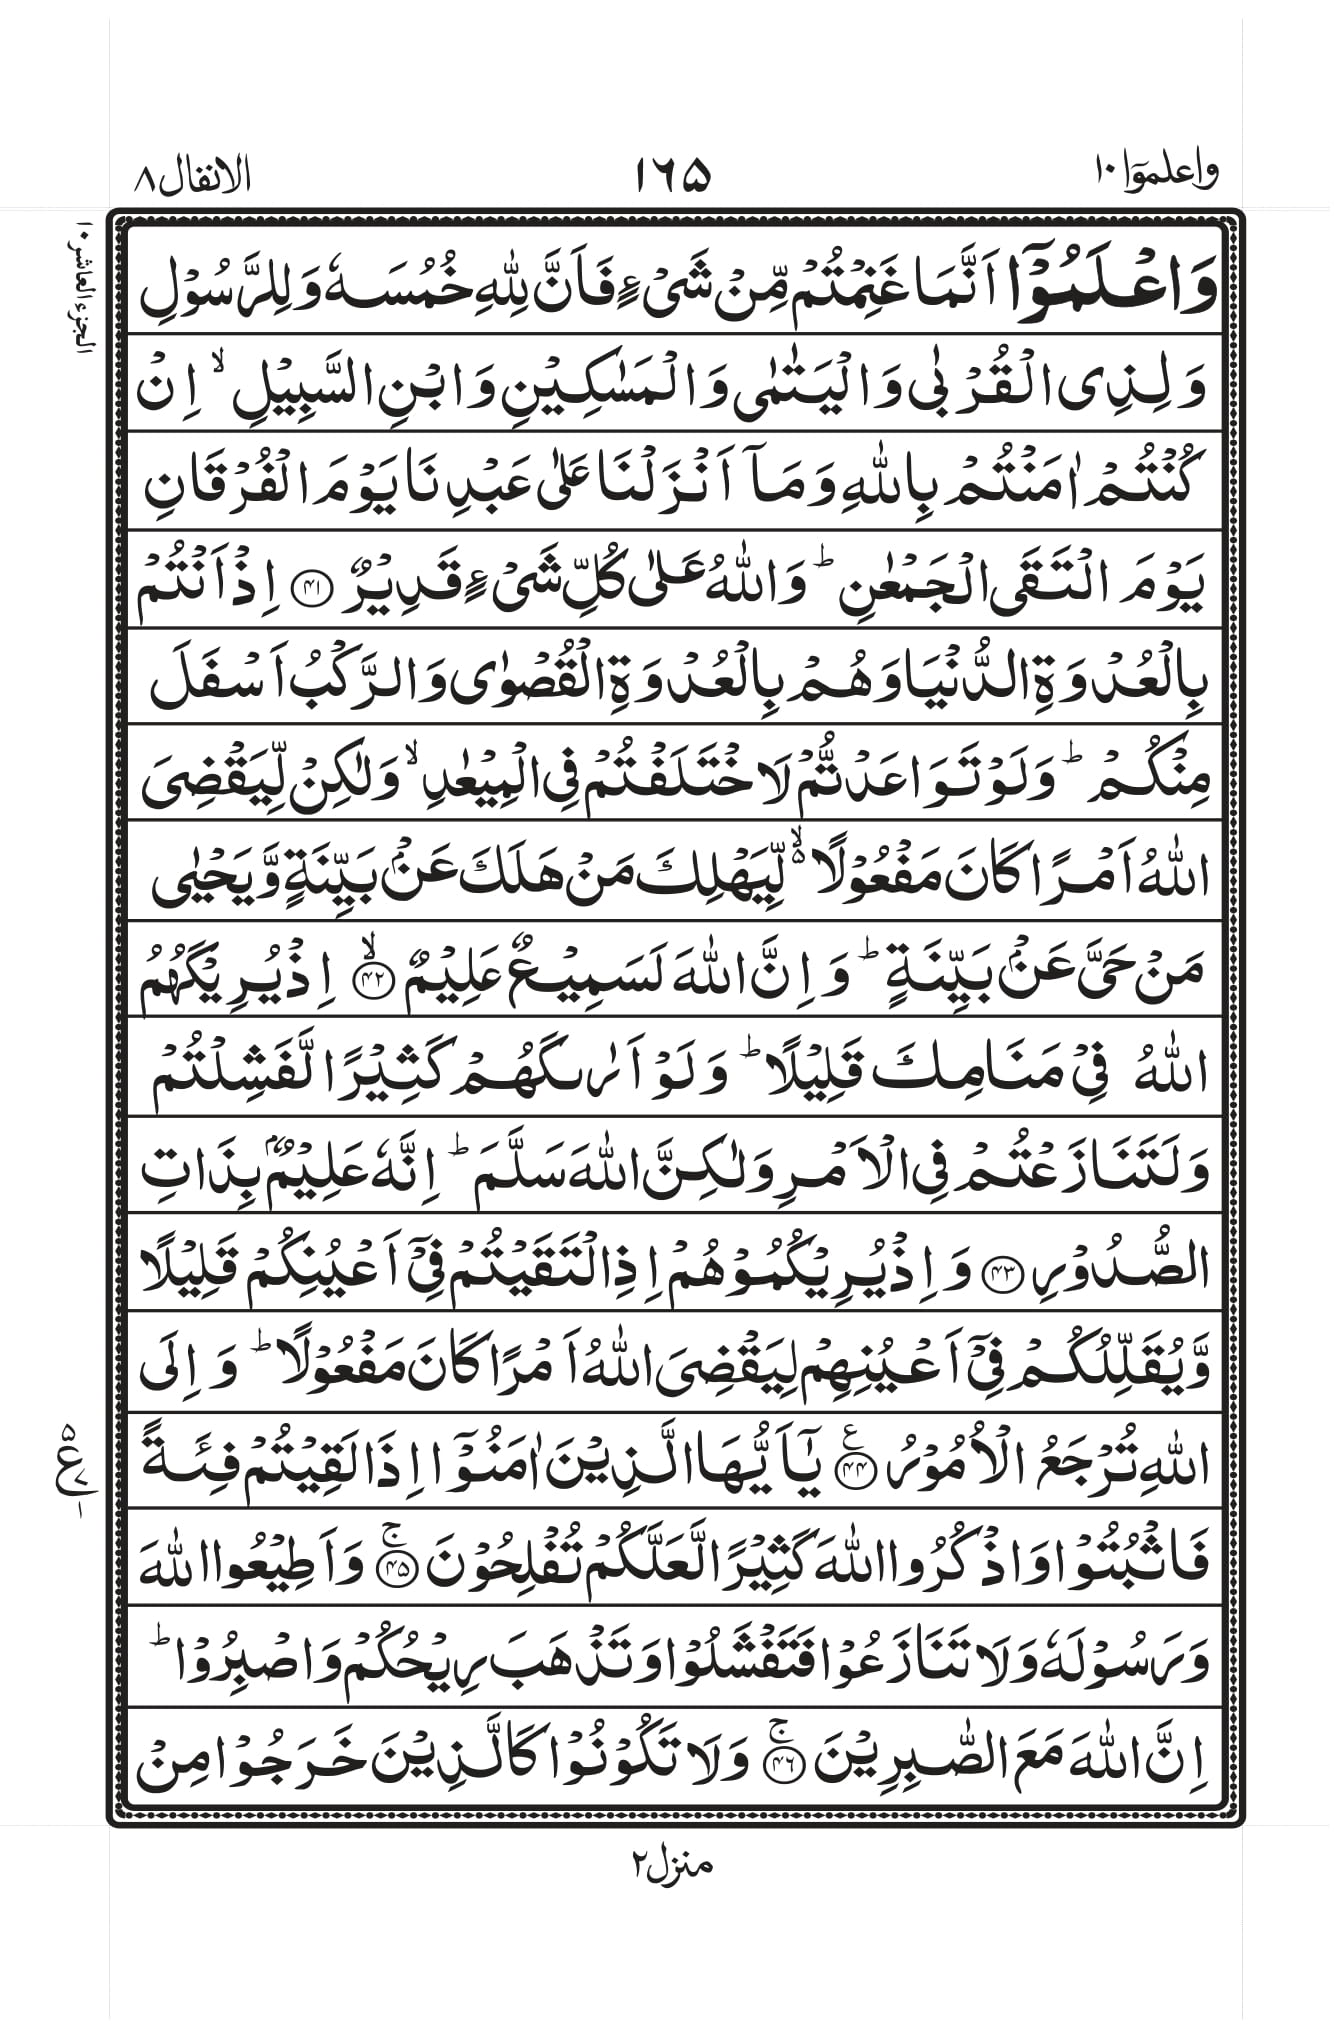 واعلموٓا ۱۰
۱۶۵
الانفال ۸
الجزء العاشر ۱۰
وَاعْلَمُوْٓا اَنَّمَا غَنِمْتُمْ مِّنْ شَیْءٍ فَاَنَّ لِلّٰهِ خُمُسَهٗ وَلِلرَّسُوْلِ
وَلِذِی الْقُرْبٰی وَالْیَتٰمٰی وَالْمَسٰكِیْنِ وَابْنِ السَّبِیْلِ ۙ اِنْ
كُنْتُمْ اٰمَنْتُمْ بِاللّٰهِ وَمَآ اَنْزَلْنَا عَلٰی عَبْدِنَا یَوْمَ الْفُرْقَانِ
یَوْمَ الْتَقَی الْجَمْعٰنِ ؕ وَاللّٰهُ عَلٰی كُلِّ شَیْءٍ قَدِیْرٌ ﴿۴۱﴾ اِذْ اَنْتُمْ
بِالْعُدْوَةِ الدُّنْیَا وَهُمْ بِالْعُدْوَةِ الْقُصْوٰی وَالرَّكْبُ اَسْفَلَ
مِنْكُمْ ؕ وَلَوْ تَوَاعَدْتُّمْ لَاخْتَلَفْتُمْ فِی الْمِیْعٰدِ ۙ وَلٰكِنْ لِّیَقْضِیَ
اللّٰهُ اَمْرًا كَانَ مَفْعُوْلًا ۙ۬ لِّیَهْلِكَ مَنْ هَلَكَ عَنْۢ بَیِّنَةٍ وَّیَحْیٰی
مَنْ حَیَّ عَنْۢ بَیِّنَةٍ ؕ وَاِنَّ اللّٰهَ لَسَمِیْعٌ عَلِیْمٌ ﴿ۙ۴۲﴾ اِذْ یُرِیْكَهُمُ
اللّٰهُ فِیْ مَنَامِكَ قَلِیْلًا ؕ وَلَوْ اَرٰىكَهُمْ كَثِیْرًا لَّفَشِلْتُمْ
وَلَتَنَازَعْتُمْ فِی الْاَمْرِ وَلٰكِنَّ اللّٰهَ سَلَّمَ ؕ اِنَّهٗ عَلِیْمٌۢ بِذَاتِ
الصُّدُوْرِ ﴿۴۳﴾ وَاِذْ یُرِیْكُمُوْهُمْ اِذِ الْتَقَیْتُمْ فِیْٓ اَعْیُنِكُمْ قَلِیْلًا
وَّیُقَلِّلُكُمْ فِیْٓ اَعْیُنِهِمْ لِیَقْضِیَ اللّٰهُ اَمْرًا كَانَ مَفْعُوْلًا ؕ وَاِلَی
اللّٰهِ تُرْجَعُ الْاُمُوْرُ ﴿ع۴۴﴾ یٰٓاَیُّهَا الَّذِیْنَ اٰمَنُوْٓا اِذَا لَقِیْتُمْ فِئَةً
۵ ع ۷ ۱
فَاثْبُتُوْا وَاذْكُرُوا اللّٰهَ كَثِیْرًا لَّعَلَّكُمْ تُفْلِحُوْنَ ﴿ۚ۴۵﴾ وَاَطِیْعُوا اللّٰهَ
وَرَسُوْلَهٗ وَلَا تَنَازَعُوْا فَتَفْشَلُوْا وَتَذْهَبَ رِیْحُكُمْ وَاصْبِرُوْا ؕ
اِنَّ اللّٰهَ مَعَ الصّٰبِرِیْنَ ﴿ۚ۴۶﴾ وَلَا تَكُوْنُوْا كَالَّذِیْنَ خَرَجُوْا مِنْ
منزل ۲